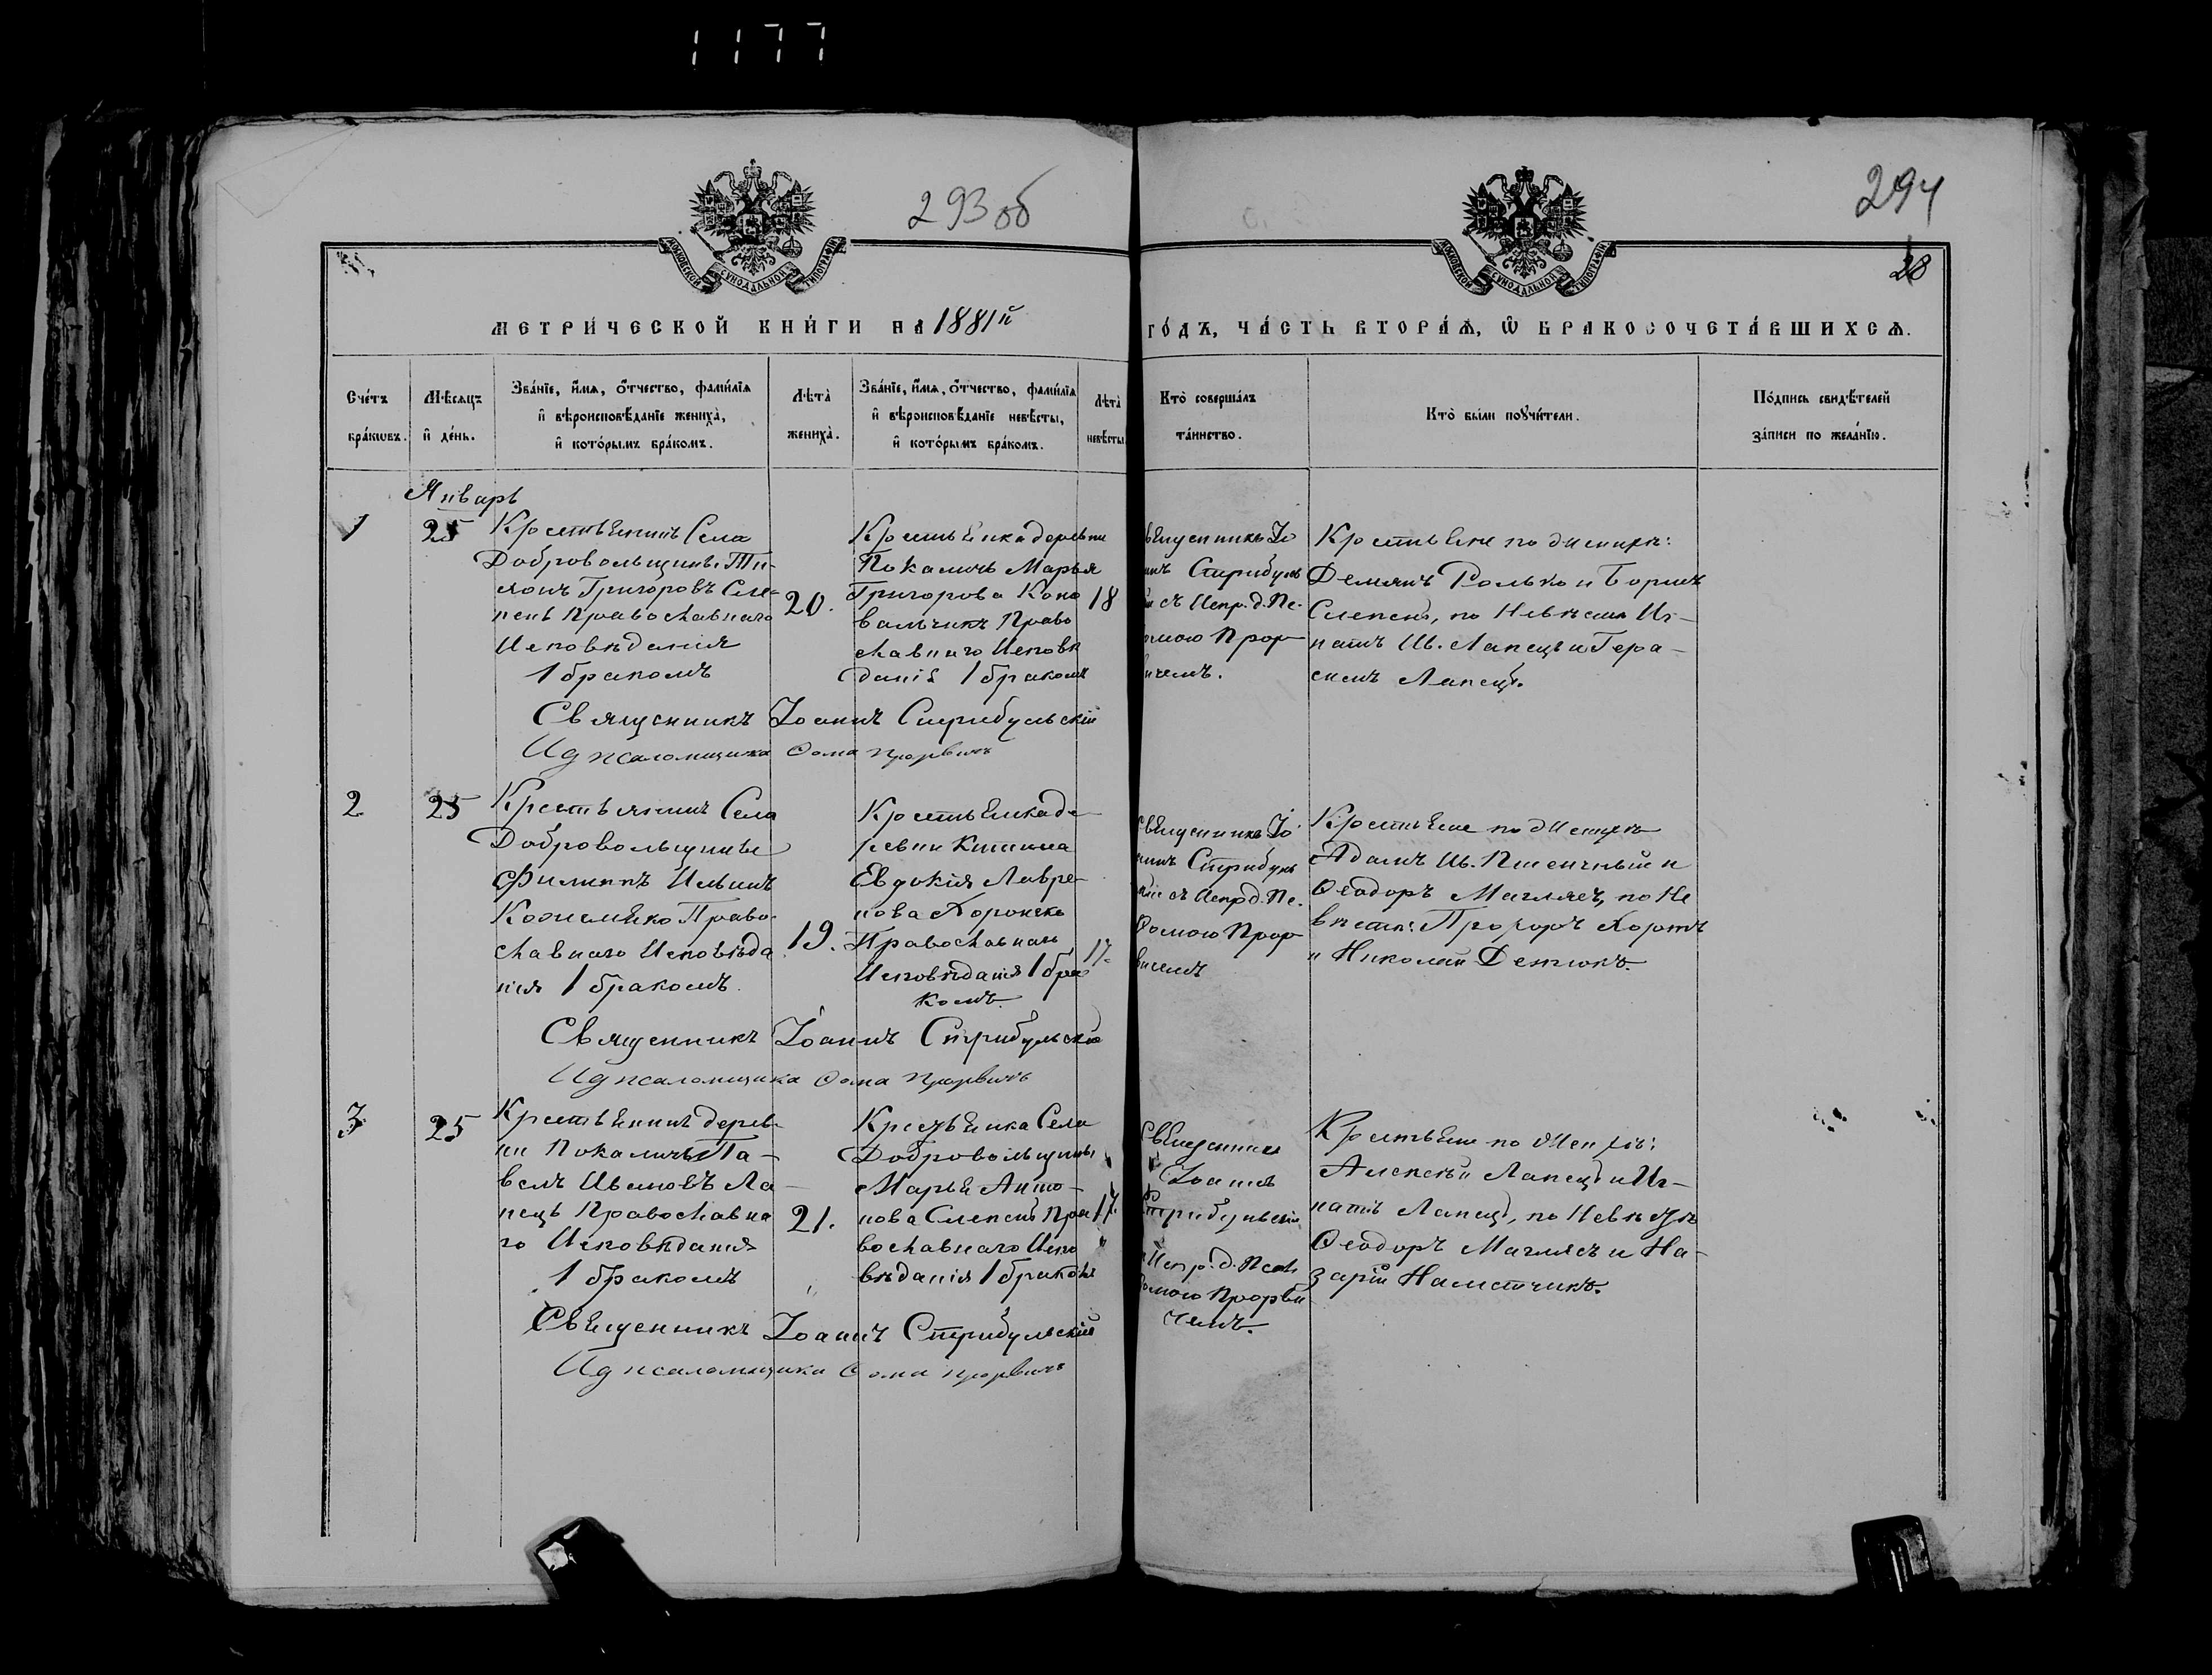 1177
293 об
294
28
МОСКОВСКОЙ СѴНОДАЛЬНОЙ ТИПОГРАФІИ
МОСКОВСКОЙ СѴНОДАЛЬНОЙ ТИПОГРАФІИ
МЕТРИ́ЧЕСКОЙ КНИ́ГИ НА 1881й ГО́ДЪ, ЧА́СТЬ ВТОРА́Ѧ, Ѿ БРАКОСОЧЕТА́ВШИХСѦ.
Сче́тъ бра́кѡвъ.
Мѣ́сяцъ и҆ де́нь.
Зва́нїе, и҆́мя, ѻ҆́тчество, фами́лїя
и҆ вѣроисповѣ́данїе жениха̀,
и҆ кото́рымъ бра́комъ.
Лѣта̀ жениха̀.
Зва́нїе, и҆́мя, ѻ҆́тчество, фами́лїя
и҆ вѣроисповѣ́данїе невѣ́сты,
и҆ кото́рымъ бра́комъ.
Лѣта̀ невѣ́сты
Кто̀ соверша́лъ та́инство.
Кто̀ бы́ли поꙋчи́тели.
По́дпись свидѣ́телей
за́писи по жела́нїю.
Январь
1
25
Крестьянинъ Села
Добровольщины Ти-
моъ Григоровъ Сле-
пень Православнаго
Исповѣданія
1 бракомъ
20.
Крестьянка деревни
Покаличъ Марья
Григорова Коно
вальчикъ Право
славнаго Исповѣ
данія 1 бракомъ
18
вященникъ Іо
инъ Стрибуль
съ Испр. д. Пс.
омою Прор
ичемъ.
Крестьяне по
Демянъ Ролько и Борисъ
Слепень, по Невѣсти Иг-
натъ Ив. Лапецъ и Гера-
симъ Лапецъ.
Священникъ Іоаннъ Стрибульскій
Ид псаломщика Ѳома Прорвичъ
2
25
Крестьянинъ Села
Добровольщины
Филиппъ Ильинъ
Кожемяко Право-
славнаго Исповѣда
нія 1 бракомъ.
19.
Крестьянка де-
ревни
Евдокія Лавре-
нова
Православнаго
Исповѣданія 1 бра
комъ.
17.
священникъ Іо
анъ Стрибуль
скій съ Испр д. Пс.
Ѳомою Прор
вичемъ
Крестьяне по
Адамъ Ив. Пшеничный и
Ѳеодоръ Магляс, по Не
вѣсти: Прохоръ Хортъ
и Николай
Священникъ Іоаннъ Стрибульскій
Ид псаломщика Ѳома Прорвичъ
3
25
Крестьянинъ дерев-
ни Покаличъ Па-
велъ Ивановъ Ла-
пецъ Православна
го Исповѣданія
1 бракомъ
21.
Крестьянка Села
Добровольщины
Марья Анто-
нова Слепень Пра
вославнаго Испо
вѣданія 1 бракомъ
17.
Священникъ
Іоаннъ
Стрибульскій
Испр. д. Псал
омою Прорви
чемъ.
Крестьяне по
Алексѣй Лапецъ и Иг-
натъ Лапецъ, по Невѣстѣ
Ѳеодоръ Маглясъ и На-
зарій Наместчикъ.
Священникъ Іоаннъ Стрибульскій
Ид псаломщика Ѳома Прорвичъ